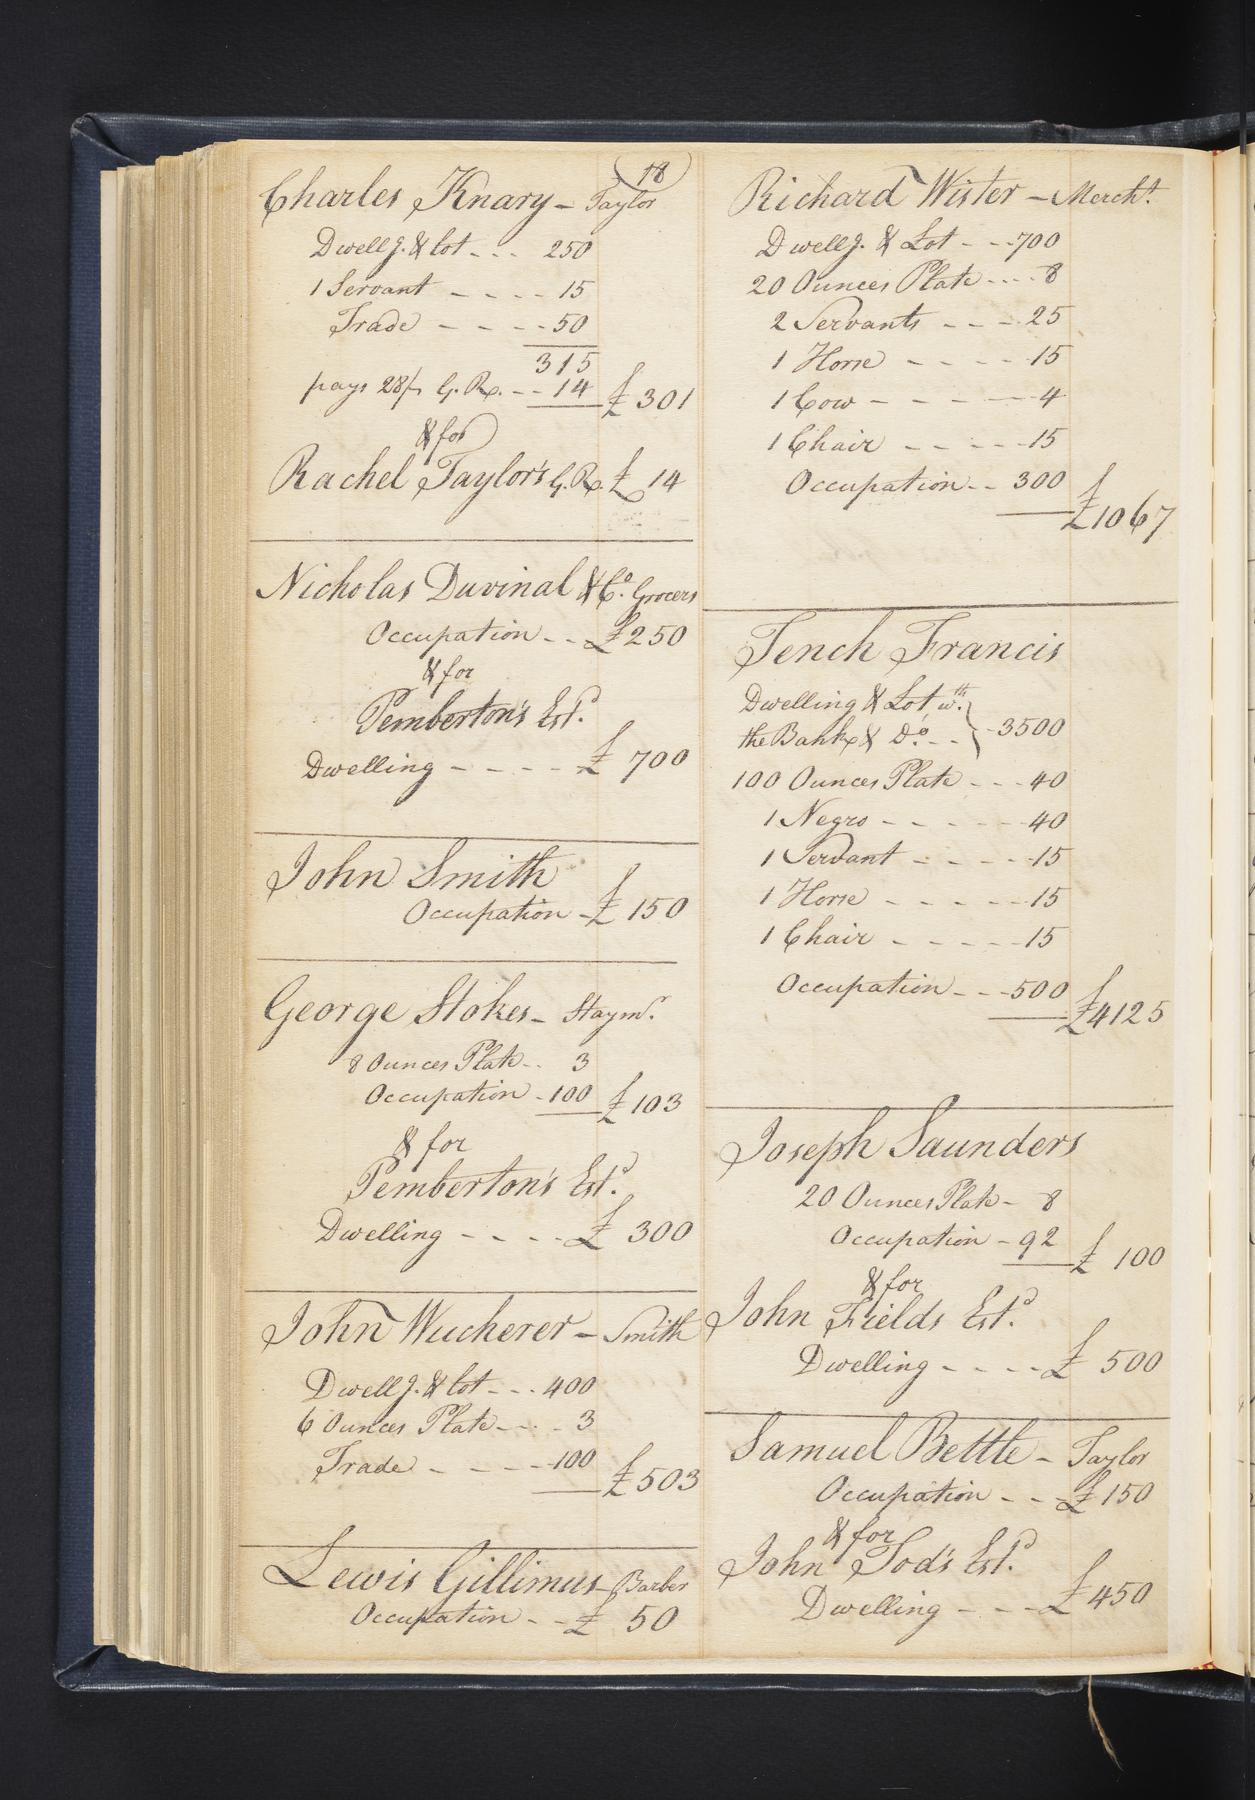 18
Charles Knary - Taylor
Dwellg. & lot - - - 250
1 Servant - - - - 15
Trade - - - - 50
315
pays 28/- G. R. - - 14 £ 301
& for
Rachel Taylor's G. R. £ 14
Nicholas Duvinal & Co. Grocers
Occupation - - £ 250
& for
Pemberton's Estd.
Dwelling - - - - £ 700
John Smith
Occupation - £ 150
George Stokes - Staymr.
8 Ounces Plate - - 3
Occupation - 100 £ 103
& for
Pemberton's Estd.
Dwelling - - - - £ 300
John Wucherer - Smith
Dwellg. & lot - - - 400
6 Ounces Plate - - - 3
Trade - - - - 100 £ 503
Lewis Gillimus - Barber
Occupation - - £ 50
Richard Wister - Mercht.
Dwellg. & Lot - - - 700
20 Ounces Plate - - - - 8
2 Servants - - - 25
1 Horse - - - - 15
1 Cow - - - - - 4
1 Chair - - - - - 15
Occupation - - 300
£ 1067
Tench Francis
Dwelling & Lot wth.
the Bank & Do. - - } - 3500
100 Ounces Plate - - - 40
1 Negro - - - - - 40
1 Servant - - - - - 15
1 Horse - - - - - 15
1 Chair - - - - - 15
Occupation - - - 500
£ 4125
Joseph Saunders
20 Ounces Plate - 8
Occupation - 92 £ 100
& for
John Fields Estd.
Dwelling - - - - £ 500
Samuel Bettle - Taylor
Occupation - - - £ 150
& for
John Tod's Estd.
Dwelling - - - £ 450